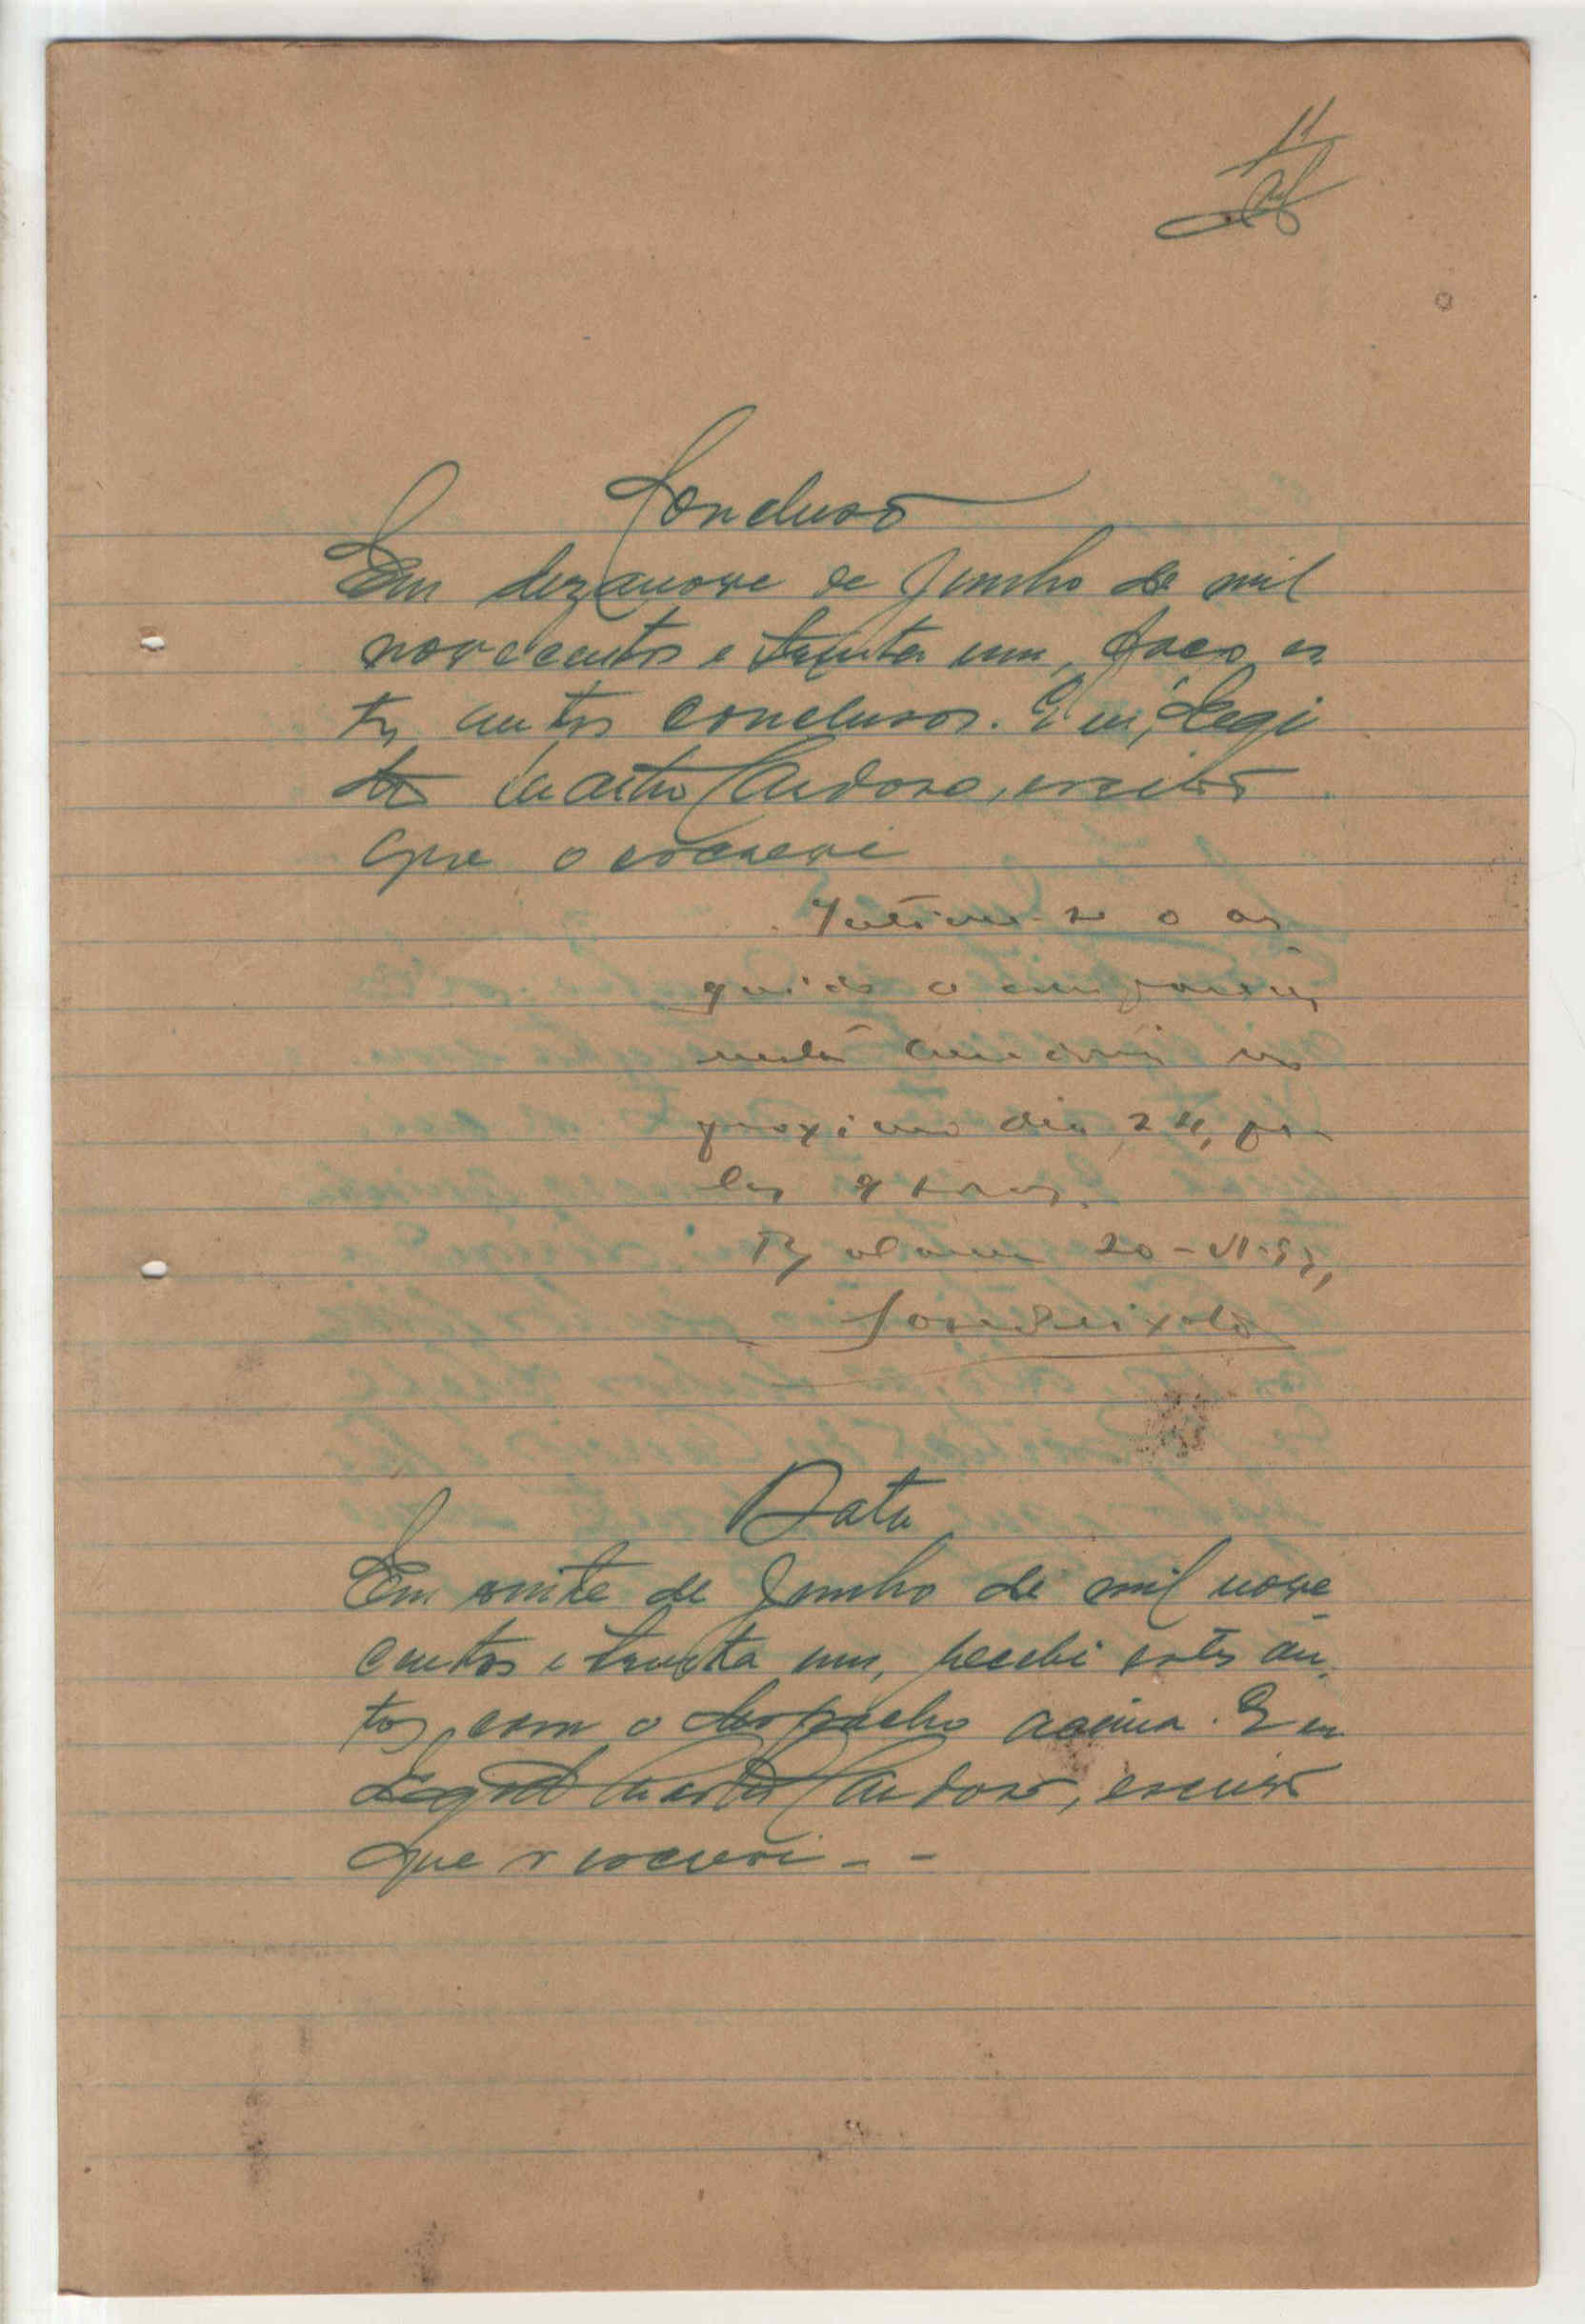 11
Concluso
Em dezanove de Junho de mil
novecentos e trinta um, faço es
tes autos conclusos. Eu,
Castro Cardoso, escrivão
que o escrevi
Intime-se o ar
guido a comparecer
nesta no
proximo dia 24, pe-
las 9 horas.
20-VI-31,
José Peixoto
Data
Em vinte de Junho de mil nove
centos e trinta um, recebi estes au-
tos com o despacho acima. Eu
Castro Cardoso, escrivão
que o escrevi - -